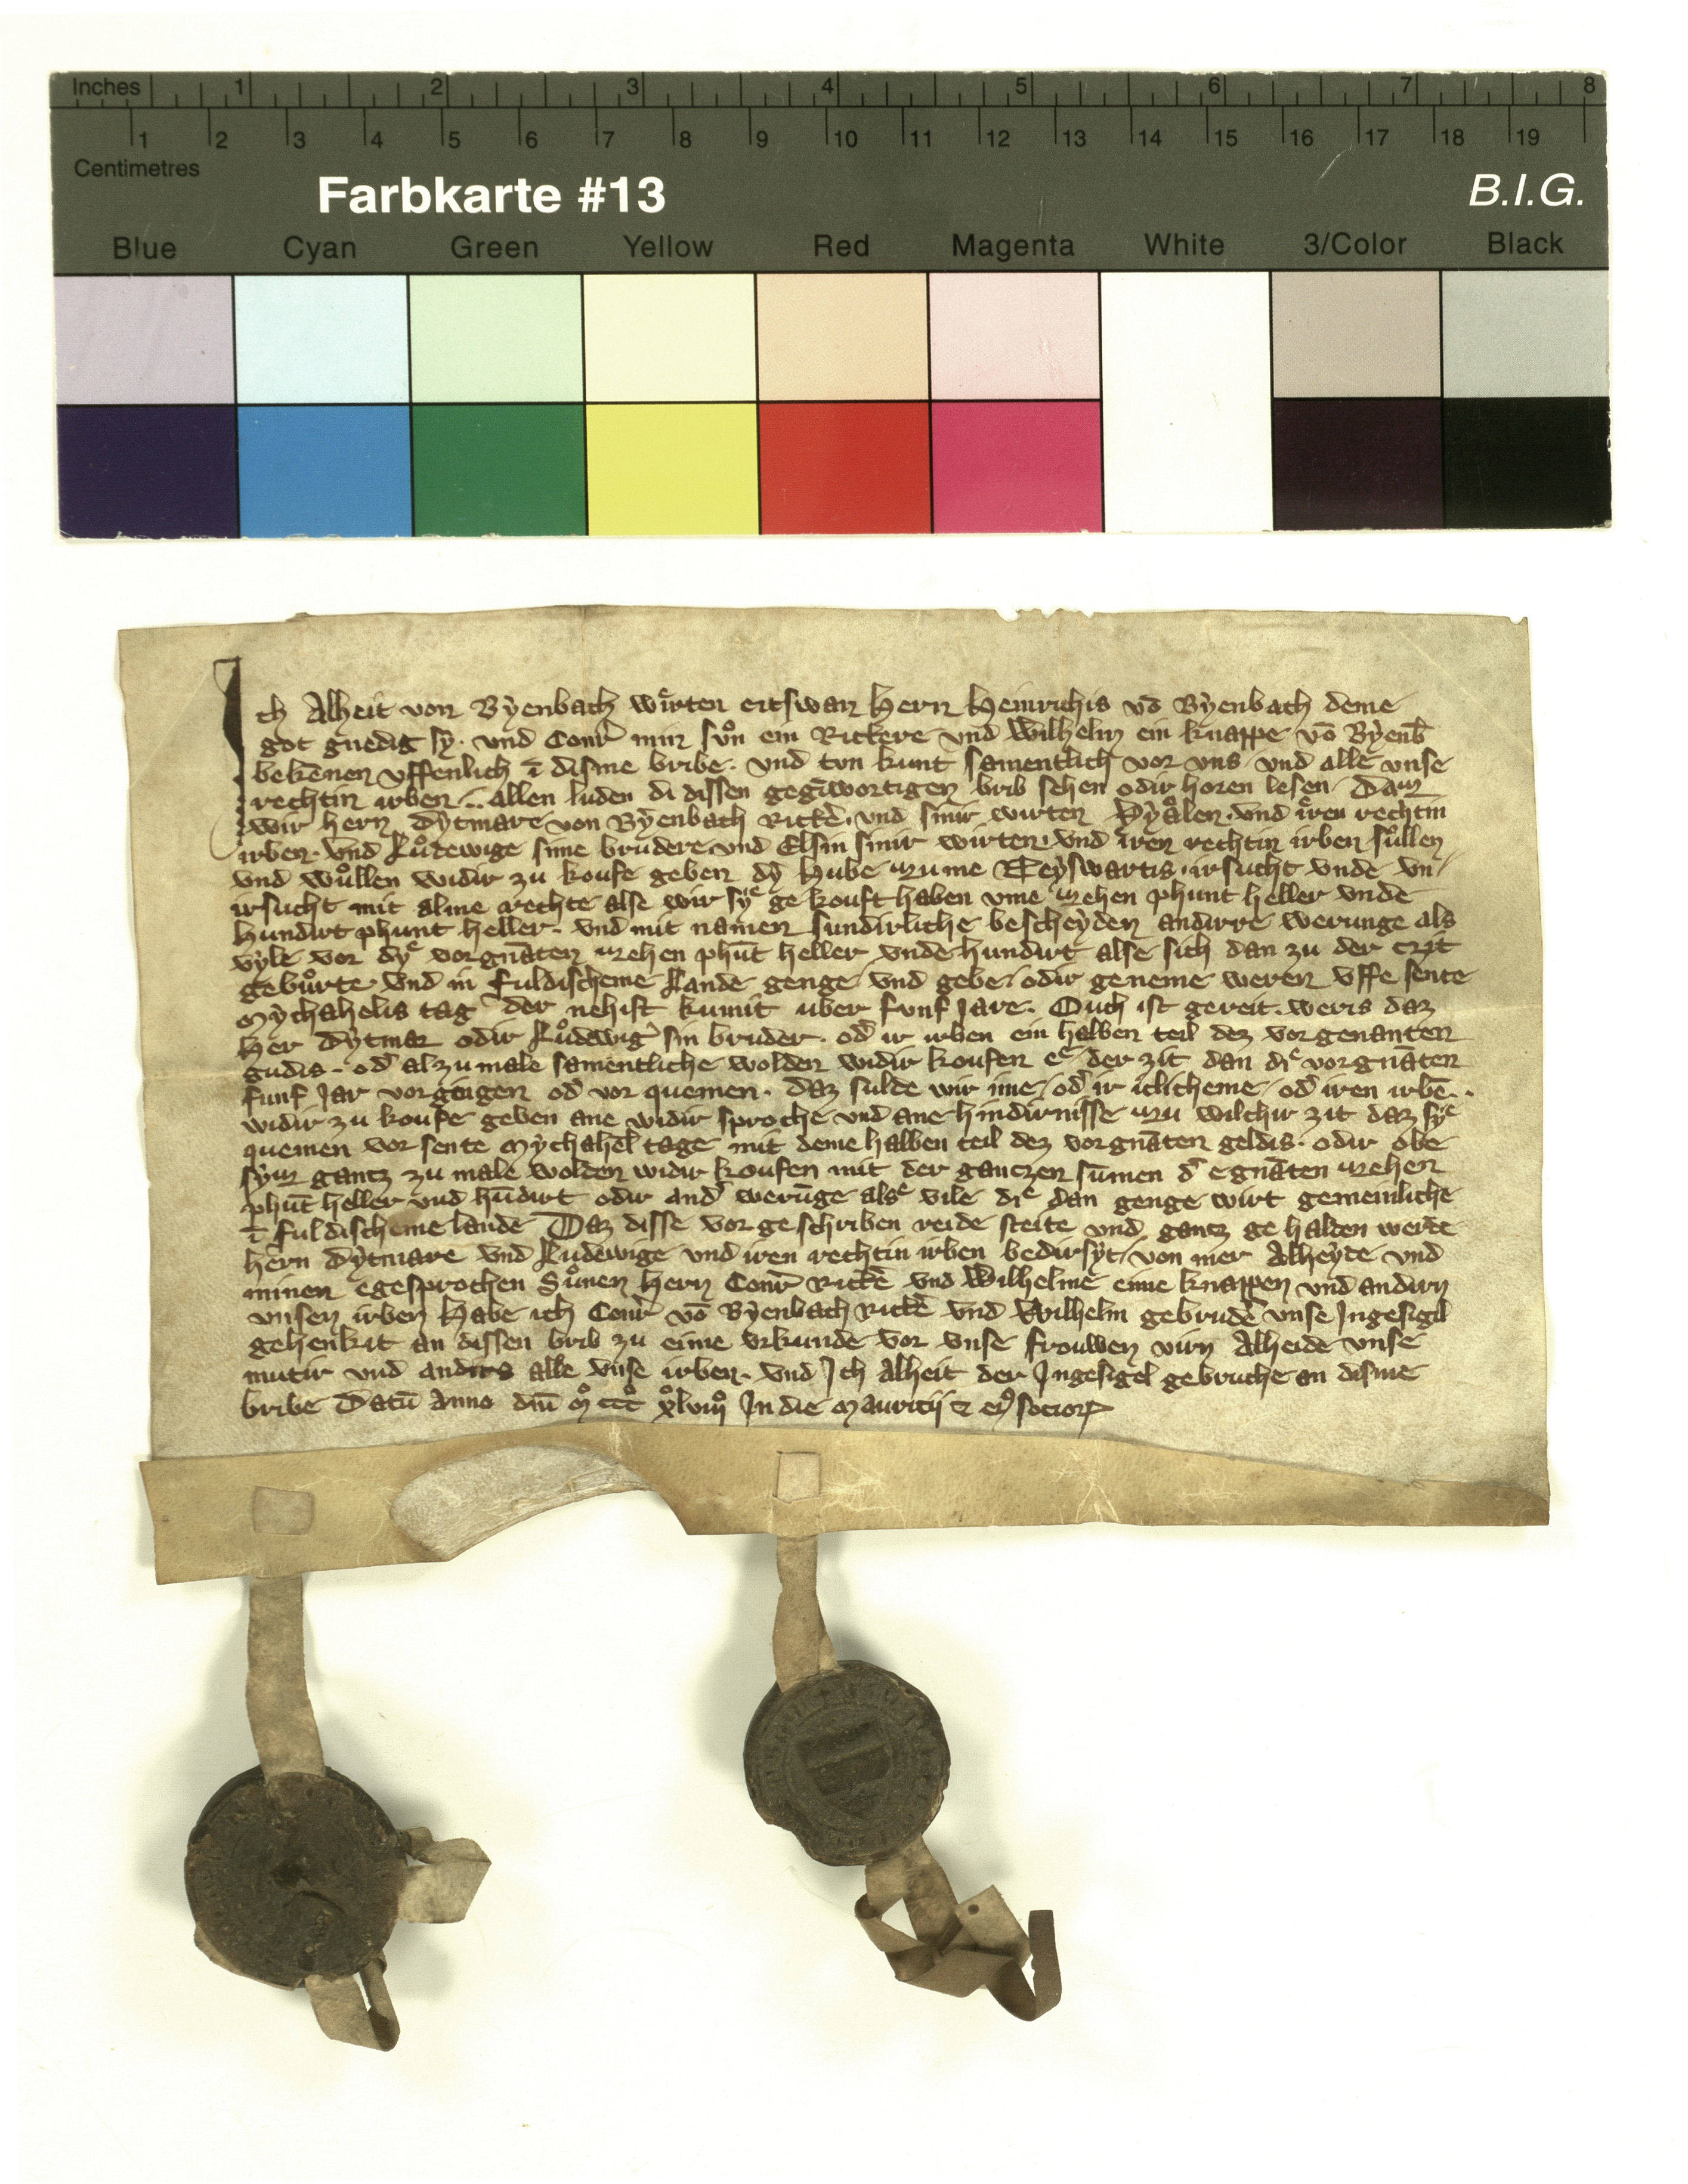 Inches 1 2 3 4 5 6 7 8
1 2 3 4 5 6 7 8 9 10 11 12 13 14 15 16 17 18 19
Centimetres
Farbkarte #13 B.I.G.
Blue Cyan Green Yellow Red Magenta White 3/Color Black
Ich Alheit von Bẏenbach wͤirten Hern Heinrichis vō Bẏenbach deme
got gnedig sẏ. und Conr̄ min suͦn ein Rickere und Wilhelm ein knappe vō Bẏenb̄
bekēnen vffenlich ī disme bribe. und tvn kunt samentlich vor vns und alle vnse
rechtin irben allen luden di dissen gegīwortigen brib sehen odir horen lesen Daz
wir hern Dẏtmare von Bẏenbach und sinir wirten und ͤiren rechtin
irben. vnd Luͦdewige sime brudere vnd Elsin sinir wirten vnd iren rechtin irben suͦllen
vnd wuͦllen widir zu koufe geben dẏ hube zume irsucht vnde vn
irsucht mit alme rechte alse wir sẏͤ ge kouft haben vme zehen phunt heller vnde
hundirt phunt heller. vnd mit namen sundirliche bescheẏden andirre werunge als
vẏle vor dẏͤ vorgnāten zehen phūt heller vnde hundirt alse sich dan zu der czẏt
gebuͦrte vnd in fuldischeme lande genge und gebe odir geneme weren vffe sente
Mẏchahelis tag der nehist kumit uber funf Jare. Ouch ist gereit. weris daz
her Dẏtmar odir Luͦdewig sin bruder. od̄ ir irben ein halben teil dez vorgenanten
gudis. od̄ alzumale samentliche wolden widir koufen eͤ der zit dan diͤ vorgnāten
funf Jar vorgingen od̄ vor quemen. daz sulde wir ime od̄ ir iclicheme od̄ iren irbē.
widir zu koufe geben ane widir sproche und ane hindirnisse zu wilchir zit daz sẏͤ
quemen vor sente Mẏchahel tage mit deme halben teil dez vorgnāten geldis. odir obe
sẏz gantz zu male wolden widir koufen mit der gantzen sūmen d̄ egnāten zehen
phūt heller vnd hūdirt odir and̄ werūge alsͤ vile diͤ dan genge wirt gemeinliche
ī fuldischeme lande Daz disse vorgeschriben reide steite und gantz ge halden werde
hern Dẏtmare vnd Ludewige vnd iren rechtin irben bedirsẏt von mer Alheẏte vnd
minen egesprochen Suͦnen hern Conr̄ Rickē vnd Wilhelme eime knappen vnd andirn
vnsen irben Habe ich Conr̄ vō Bẏenbach Rickē vnd Wilhelm gebrudē vnse Jngesigil
gehenkit an dissen brib zu eime vrkunde vor vnse frouwen virn Alheide vnse
mutir vnd andirs alle vnse irben. vnd Jch Alheit der Jngesigel gebruche an disme
bribe Datū Anno dn̄i Mͦ cccͦ xͦlviiiͦ In die Mauricij